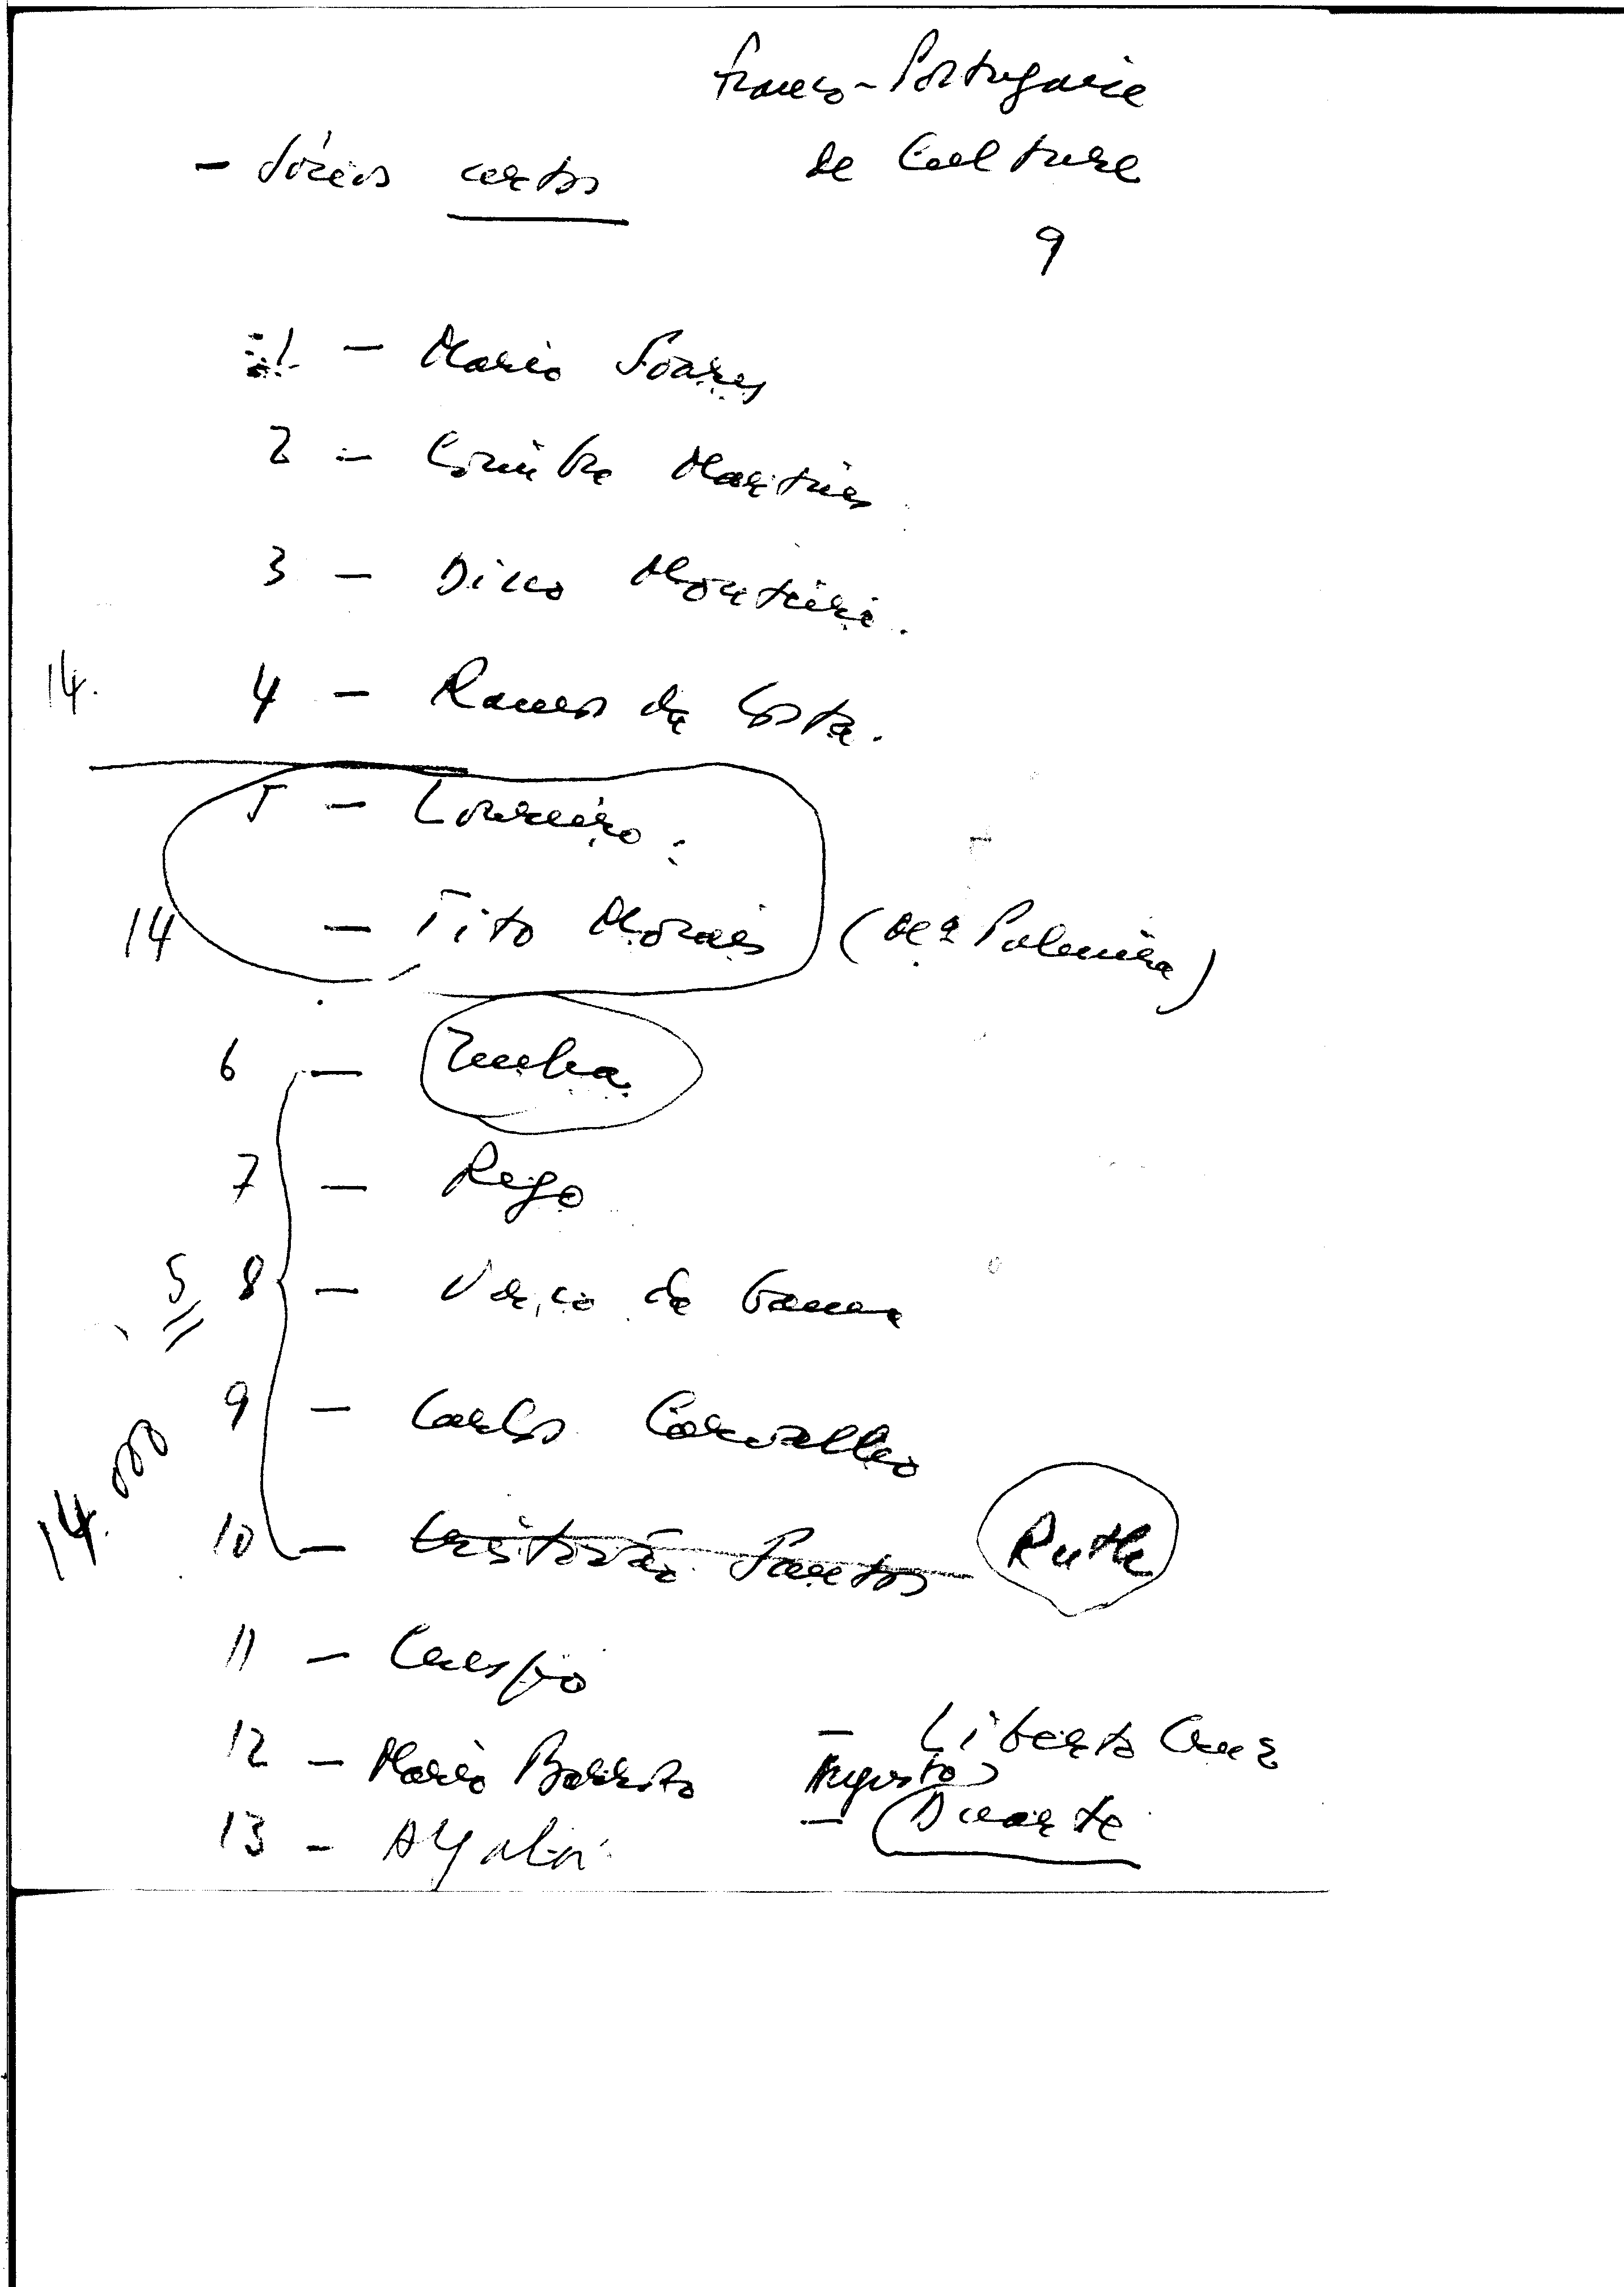 Franco-Portugaise
de Culture
- Sócios certos
9
1 - Mario Soares
2 - Coimbra Martins
3 - Dino Monteiro.
14.
4 - Ramos da Costa.
5 - Loureiro.
14
- Tito Morais (Mª Palmira)
6 - Zenha
7 - Rego
5
8 - Vasco da Gama
9 - Carlos Carvalho
14.000
10 - Cristóvão Santos Ruth
11 - Crespo
12 - Mario Barroto
- Liberto Cruz
Augusto
- Duarte
13 -